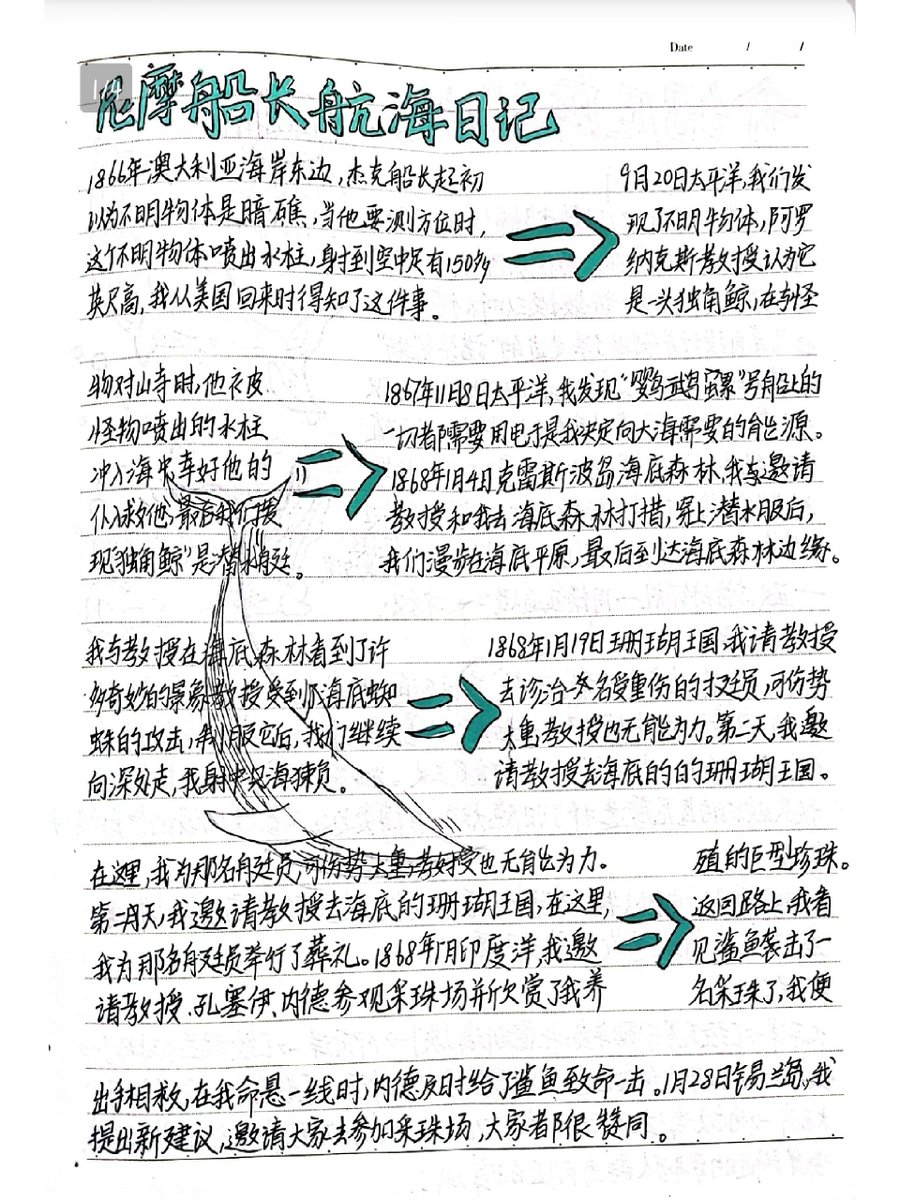 Date / /
1/4
尼摩船长航海日记
1866年澳大利亚海岸东边,杰克船长起初
以为不明物体是暗礁,当他要测方位时,
这个不明物体喷出水柱,射到空中足有150多
英尺高,我从美国回来时得知了这件事。
9月20日太平洋,我们发
现了不明物体,阿罗
纳克斯教授认为它
是一头独角鲸,在与怪
物对峙时,他被
怪物喷出的水柱
冲入海中幸好他的
仆人救他,最后我们发
现"独角鲸"是潜水艇。
1867年11月8日太平洋,我发现"鹦鹉螺"号船上的
一切都需要用电于是我决定向大海需要的能源。
1868年1月4日克雷斯波岛海底森林,我与邀请
教授和我去海底森林打措,穿上潜水服后,
我们漫步在海底平原,最后到达海底森林边缘。
我与教授在海底森林看到了许
多奇妙的景象教授受到了海底蜘
蛛的攻击,制服它后,我们继续
向深处走,我射中只海獭。
1868年1月19日珊瑚王国,我请教授
去诊治一名受重伤的艇员,可伤势
太重,教授也无能为力。第二天,我邀
请教授去海底的的珊瑚王国。
在这里,我为那名艇员,可伤势太重,教授也无能为力。
第二天,我邀请教授去海底的珊瑚王国,在这里,
我为那名艇员举行了葬礼。1868年1月印度洋,我邀
请教授、孔塞伊、内德参观采珠场并欣赏了我养
殖的巨型珍珠。
返回路上,我看
见鲨鱼袭击了一
名采珠了,我便
出手相救,在我命悬一线时,内德及时给了鲨鱼致命一击。1月28日锡兰岛,我
提出新建议,邀请大家去参加采珠场,大家都很赞同。